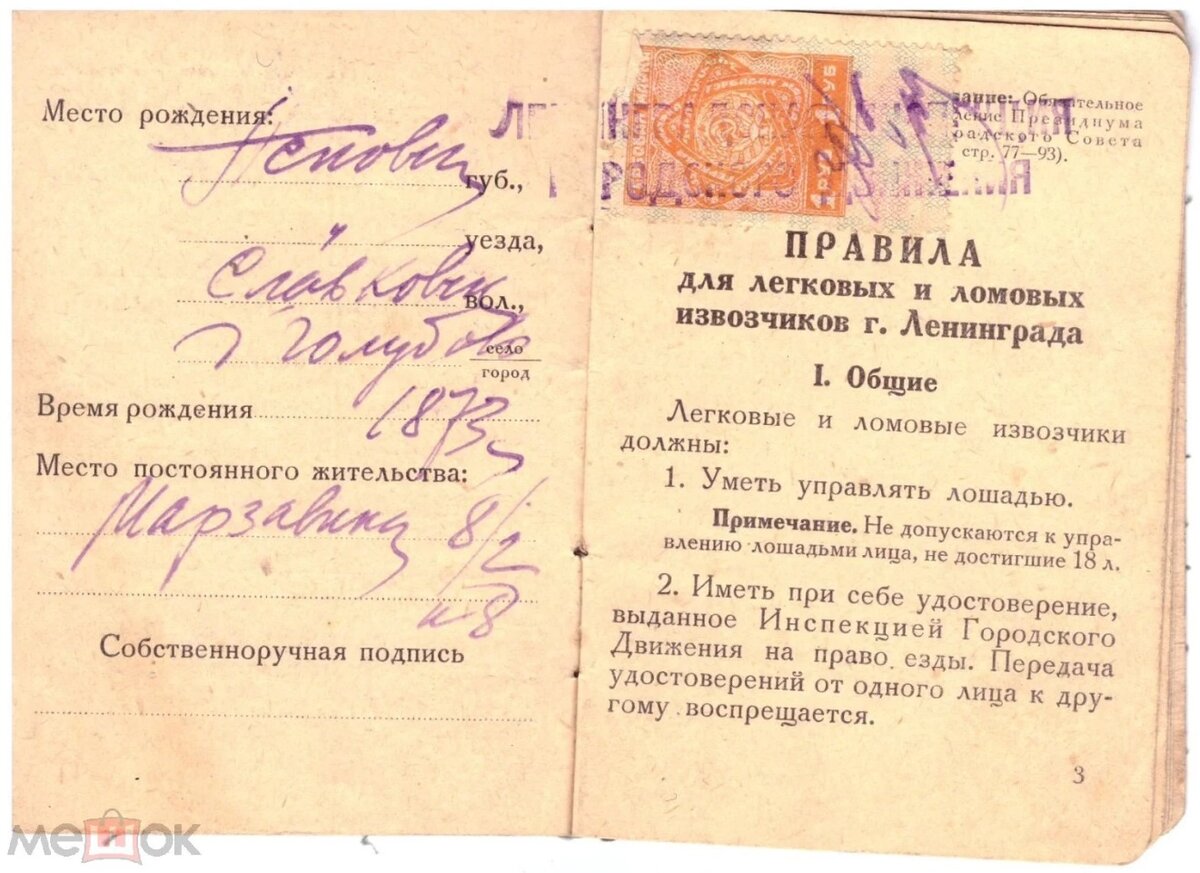 Место рождения:
губ.,
уезда,
Славковск вол.,
село
город
Время рождения 1873
Место постоянного жительства:
8/2
к 8
Собственноручная подпись
1 РУБ
Обязательное
Президиума
Совета
стр. 77—93).
ПРАВИЛА
для легковых и ломовых
извозчиков г. Ленинграда
I. Общие
Легковые и ломовые извозчики
должны:
1. Уметь управлять лошадью.
Примечание. Не допускаются к упра-
влению лошадьми лица, не достигшие 18 л.
2. Иметь при себе удостоверение,
выданное Инспекцией Городского
Движения на право езды. Передача
удостоверений от одного лица к дру-
гому воспрещается.
3
мешок